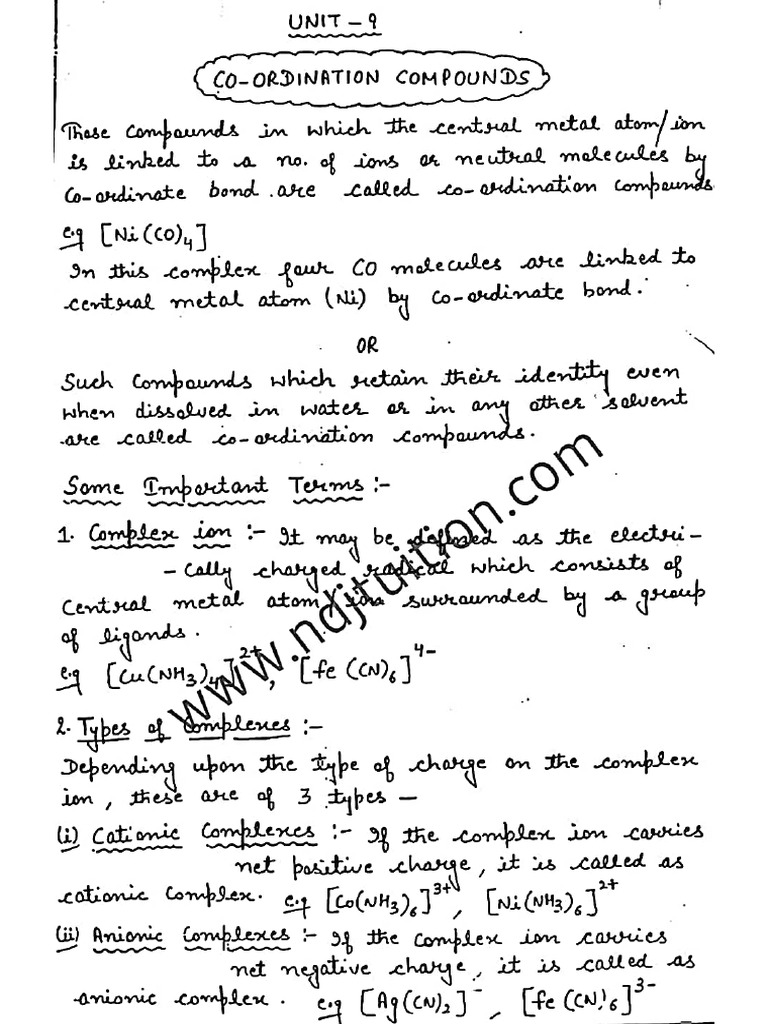 UNIT - 9
CO-ORDINATION COMPOUNDS
Those compounds in which the central metal atom/ion
is linked to a no. of ions or neutral molecules by
Co-ordinate bond are called co-ordination compounds
e.g [Ni(CO)4]
In this complex four CO molecules are linked to
central metal atom (Ni) by co-ordinate bond.
OR
Such compounds which retain their identity even
when dissolved in water or in any other solvent
are called co-ordination compounds.
Some Important Terms :-
1. Complex ion :- It may be defined as the electri-
- cally charged radical which consists of
central metal atom/ion surrounded by a group
of ligands.
e.g [Cu(NH3)4]2+, [Fe(CN)6]4-
2. Types of Complexes :-
Depending upon the type of charge on the complex
ion, these are of 3 types —
(i) Cationic Complexes :- If the complex ion carries
net positive charge, it is called as
cationic complex. e.g [Co(NH3)6]3+, [Ni(NH3)6]2+
(ii) Anionic Complexes :- If the complex ion carries
net negative charge, it is called as
anionic complex. e.g [Ag(CN)2]-, [Fe(CN)6]3-
www.ndjtuition.com